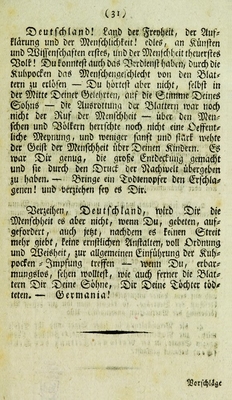 (31)
Deutschland! Land der Freyheit, der Auf-
klärung und der Menschlichkeit! edles, an Künsten
und Wissenschaften erstes, und der Menschheit theuerstes
Volk! Du konntest auch das Verdienst haben, durch die
Kuhpocken das Menschengeschlecht von den Blat-
tern zu erlösen — Du hörtest aber nicht, selbst in
der Mitte Deiner Gelehrten, auf die Stimme Deines
Sohns — die Ausrottung der Blattern war noch
nicht der Ruf der Menschheit — über den Men-
schen und Völkern herrschte noch nicht eine Oeffent-
liche Meynung, und weniger sanft und stark wehte
der Geist der Menschheit über Deinen Kindern. Es
war Dir genug, die große Entdeckung gemacht
und sie durch den Druck der Nachwelt übergeben
zu haben. — Bringe ein Todtenopfer den Erschla-
genen! und verziehen sey es Dir.
Verzeihen, Deutschland, wird Dir die
Menschheit es aber nicht, wenn Du, gebeten, auf-
gefordert, auch jetzt, nachdem es keinen Streit
mehr giebt, keine ernstlichen Anstalten, voll Ordnung
und Weisheit, zur allgemeinen Einführung der Kuh-
pocken-Impfung treffen — wenn Du, erbar-
mungslos, sehen wolltest, wie auch ferner die Blat-
tern Dir Deine Söhne, Dir Deine Töchter töd-
teten. — Germania!
Vorschläge